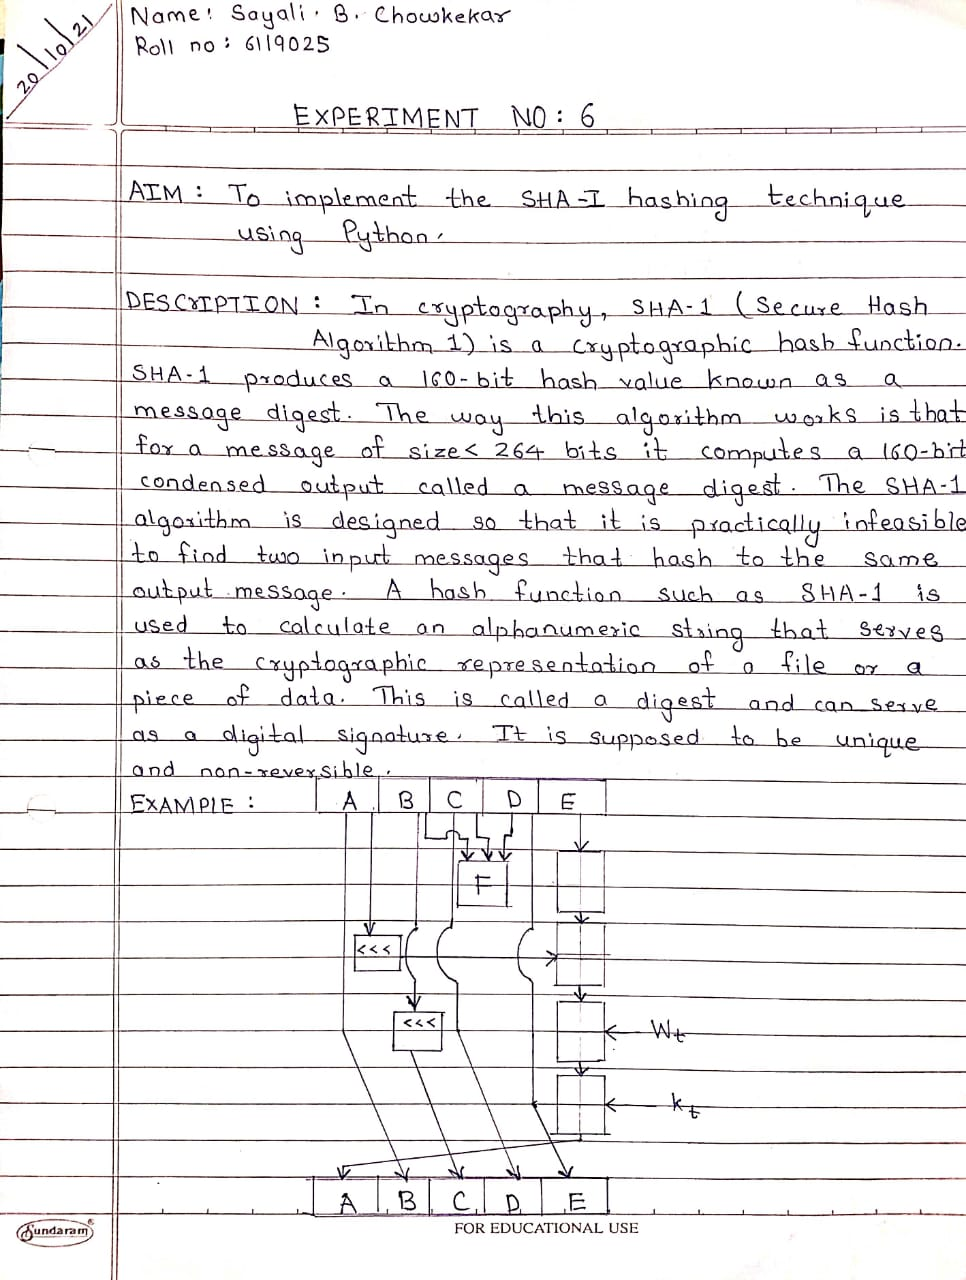 20/10/21
Name: Sayali. B. Chowkekar
Roll no: 6119025
EXPERIMENT NO: 6
AIM: To implement the SHA-I hashing technique
using Python.
DESCRIPTION: In cryptography, SHA-1 (Secure Hash
Algorithm 1) is a cryptographic hash function.
SHA-1 produces a 160-bit hash value known as a
message digest. The way this algorithm works is that
for a message of size< 264 bits it computes a 160-bit
condensed output called a message digest. The SHA-1
algorithm is designed so that it is practically infeasible
to find two input messages that hash to the same
output message. A hash function such as SHA-1 is
used to calculate an alphanumeric string that serves
as the cryptographic representation of a file or a
piece of data. This is called a digest and can serve
as a digital signature. It is supposed to be unique
and non-reversible.
EXAMPLE: A B C D E
F
<<<
<<<
Wt
kt
A B C D E
Sundaram®
FOR EDUCATIONAL USE